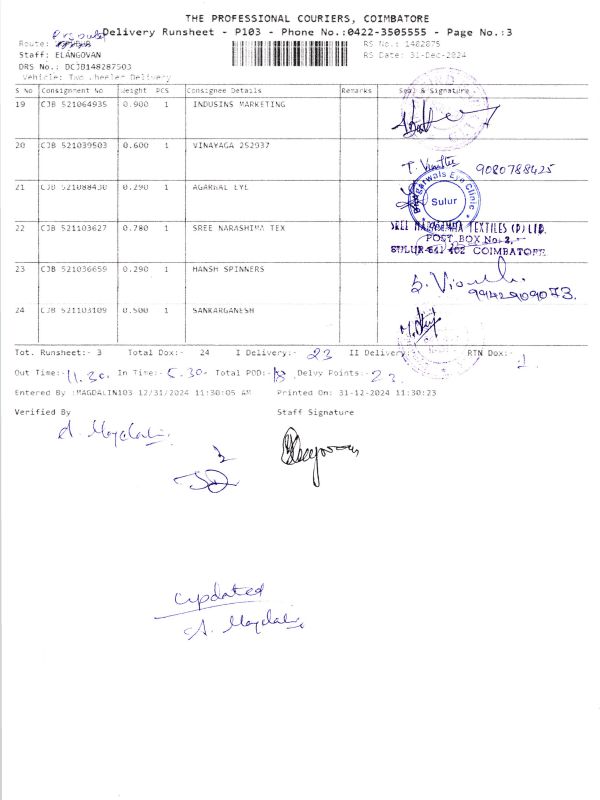 THE PROFESSIONAL COURIERS, COIMBATORE
Delivery Runsheet - P103 - Phone No.:0422-3505555 - Page No.:3
Route:
RS No.: 1482875
Staff: ELANGOVAN
RS Date: 31-Dec-2024
DRS No.: DCJB148287503
Vehicle: Two Wheeler Delivery
S No Consignment No Weight PCS Consignee Details Remarks Seal & Signature
19 CJB 521064935 0.900 1 INDUSINS MARKETING
20 CJB 521039503 0.600 1 VINAYAGA 252937
9080788425
21 CJB 521088430 0.290 1 AGARWAL EYE
Agarwals Eye Clinic
Sulur
22 CJB 521103627 0.780 1 SREE NARASHIMA TEX
SREE NARASIMHA TEXTILES (P) LTD.
POST BOX No: 2,
SULUR-641 402 COIMBATORE
23 CJB 521036659 0.290 1 HANSH SPINNERS
9942909073.
24 CJB 521103109 0.500 1 SANKARGANESH
Tot. Runsheet:- 3 Total Dox:- 24 I Delivery:- 23 II Delivery:- RTN Dox:- 1
Out Time:- 11.30. In Time:- 5.30- Total POD:- 18 , Delvy Points:- 23
Entered By :MAGDALIN103 12/31/2024 11:30:05 AM Printed On: 31-12-2024 11:30:23
Verified By Staff Signature
A. Magdalin
Elangovan
updated
A. Magdalin